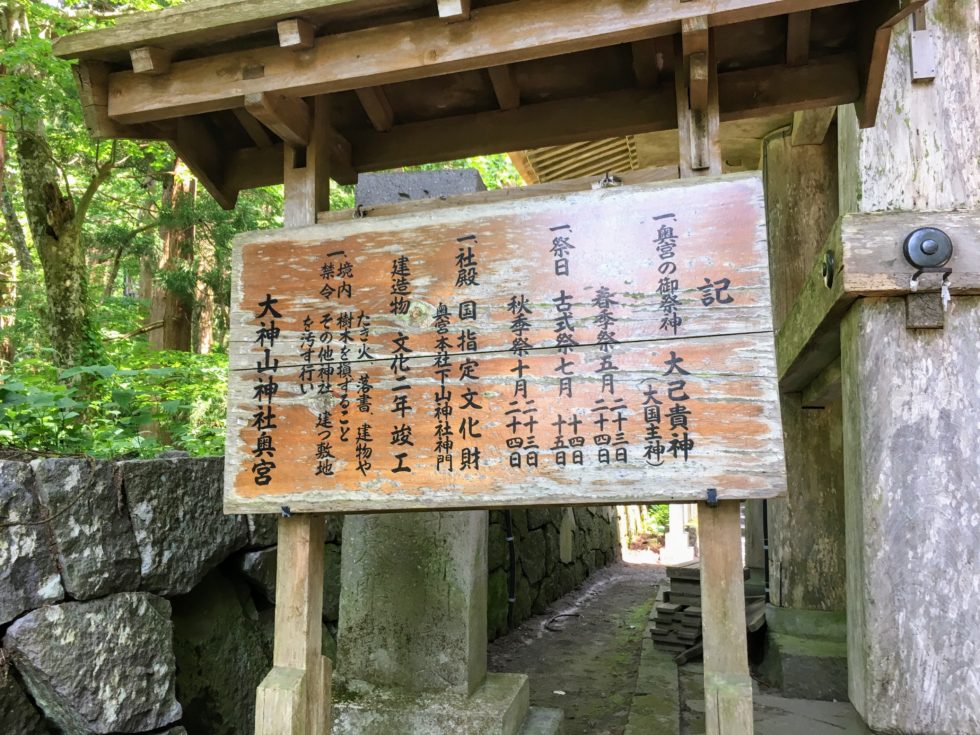 記
一、奥宮の御祭神 大己貴神
(大国主神)
一、祭日 春季祭五月 二十三日
二十四日
古式祭七月 十四日
十五日
秋季祭十月 二十三日
二十四日
一、社殿 国指定文化財
奥宮本社下山神社神門
建造物 文化二年竣工
一、境内禁令 たき火 落書 建物や
樹木を損すること
その他神社 建つ敷地
を汚す行い
大神山神社奥宮